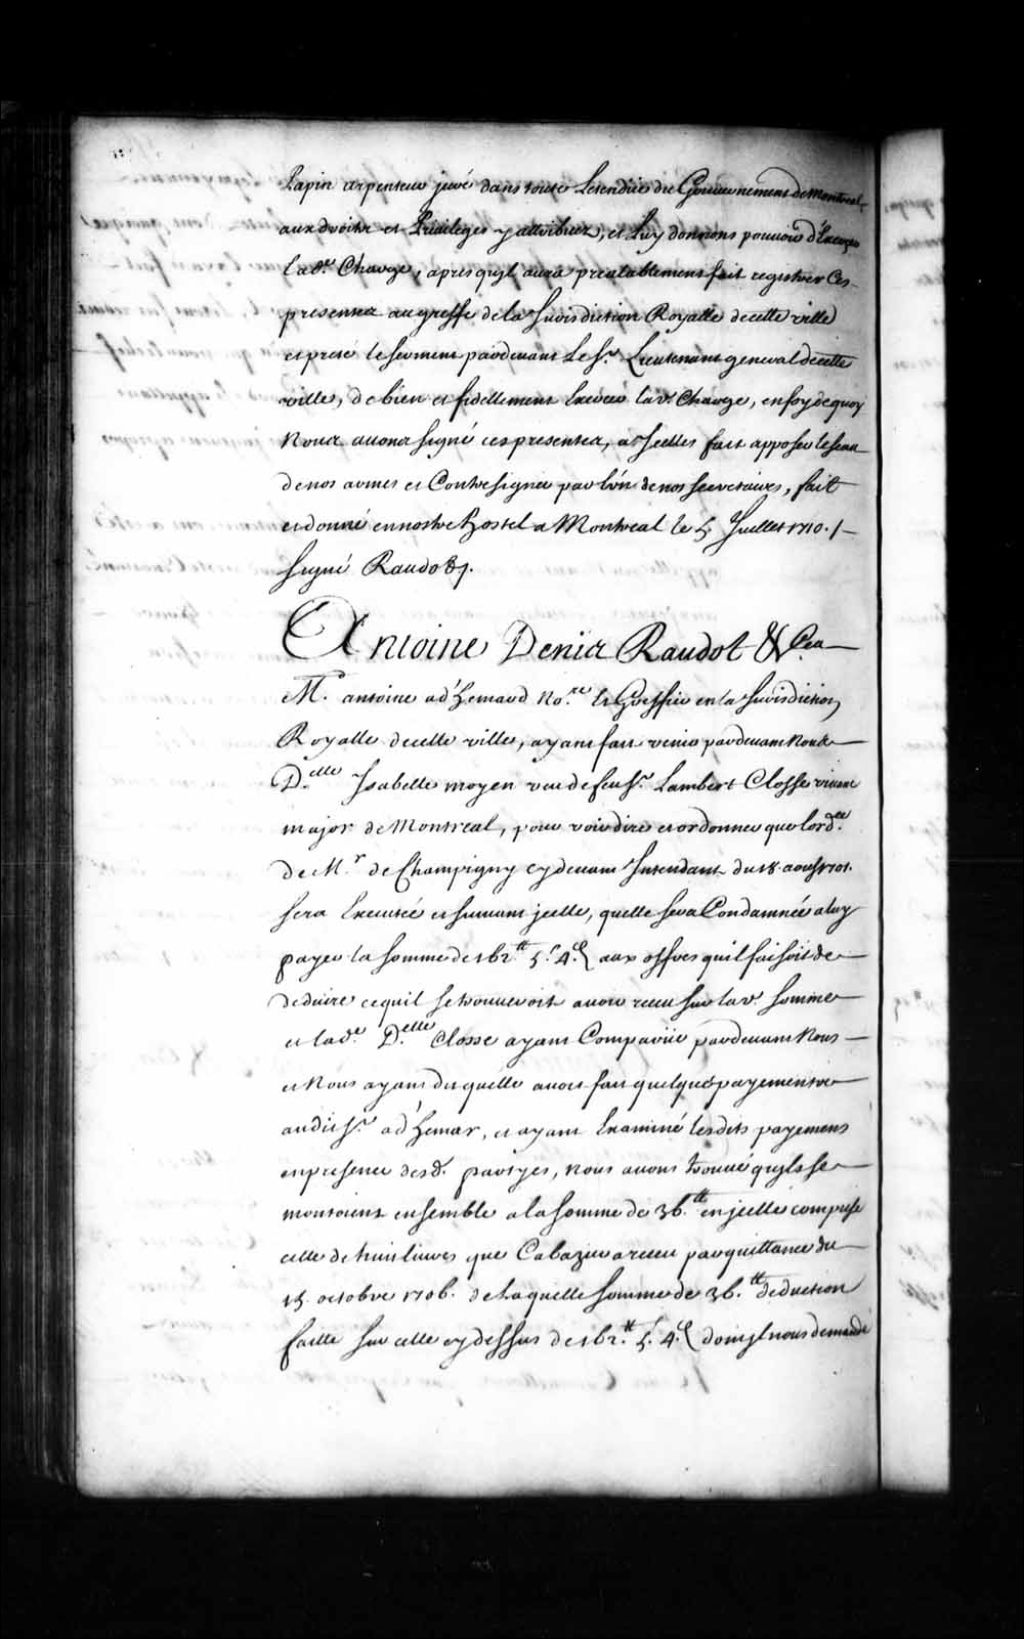 Lapin arpenteur juré dans toute Letendüe du Gouuernement de Montreal
aux droits et Priuileges y attribuez, et Luy donnons pouuoir d'Exercer
lad.e Charge, apres qu'jl aura prealablement fait registrer Ces
presentes au greffe de la Jurisdiction Royalle de cette ville
et presté le serment pardeuant Le S.r Lieutenant general de cette
ville, de bien et fidellement Exercer lad. Charge, en foy de quoy
Nous auons signé ces presentes, a jcelles fait apposer le sceau
de nos armes et Contresigner par l'vn de nos secretaires, fait
et donné en nostre hostel a Montreal le 5 Juillet 1710. /
Signé Raudot /.
Antoine Denis Raudot &c.a
M.e antoine ad'hemard No.re et Greffier en la Jurisdiction
Royalle de cette ville, ayant fait venir pardeuant Nous
D.elle Jsabelle moyen veue de feu S.r Lambert Closse viuant
major de Montreal, pour voir dire et ordonner que lord.ce
de M.r de Champigny cy deuant Jntendant du 18. aoust 1701.
sera Executée et suiuant jcelle, quelle sera Condamnée a luy
payer la somme de 162.tt 5.s 4.d aux offres quil faisoit de
deduire ce quil se trouueroit auoir receu sur lad. somme
et lad.e D.elle Closse ayant Comparüe pardeuant Nous
et Nous ayant dit quelle auoit fait quelques payements
audit S.r ad'hemar, et ayant Examiné lesdits payemens
en presence desd. partyes, nous auons trouué qu'jls se
montoient ensemble a la somme de 36.tt en jcelle comprise
celle de huit liures que Cabazier a receu par quittance du
15. octobre 1706. de laquelle somme de 36.tt deduction
faitte sur celle cy dessus de 162.tt 5.s 4.d dont jl nous demande